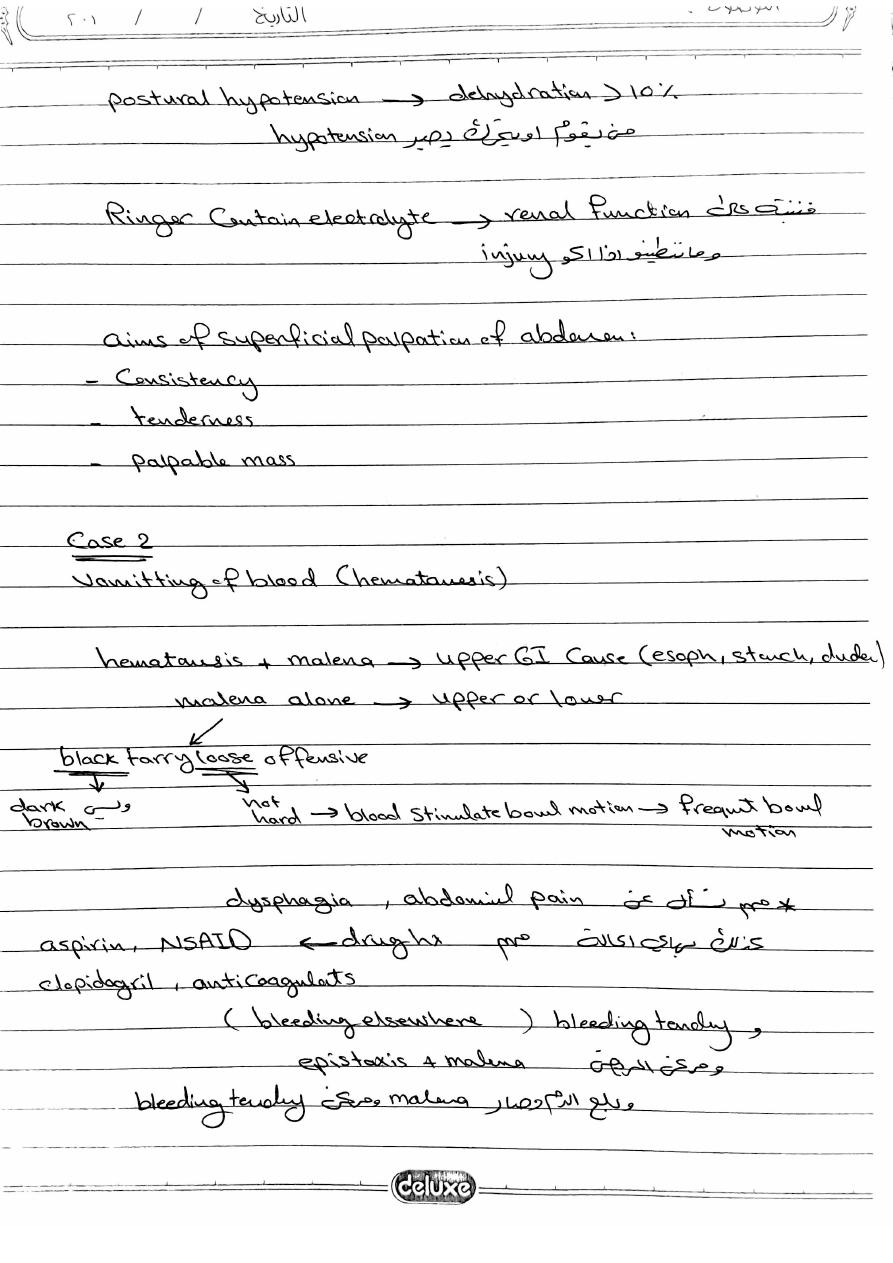 التاريخ / / ٢٠١
postural hypotension → dehydration > 10%
من يقوم او يتحرك يصير hypotension
Ringer Contain electrolyte → renal function
وما ننطيه اذا اكو injury
aims of superficial palpation of abdomen:
- Consistency
- tenderness
- palpable mass
Case 2
Vomitting of blood (hematemesis)
hematemesis + malena → upper GI Cause (esoph, stomch, duden)
malena alone → upper or lower
black tarry loose offensive
dark brown وليس
not hard → blood stimulate bowl motion → frequnt bowl motion
* مهم نسأل عن dysphagia , abdominl pain
كذلك بهاي الحالة مهم drug hx ← aspirin, NSAID
clopidogril, anticoagulats
و bleeding tendcy ( bleeding elsewhere )
وممكن المريض epistaxis + malena
وبلع الدم وصار malena وممكن bleeding tendcy
deluxe